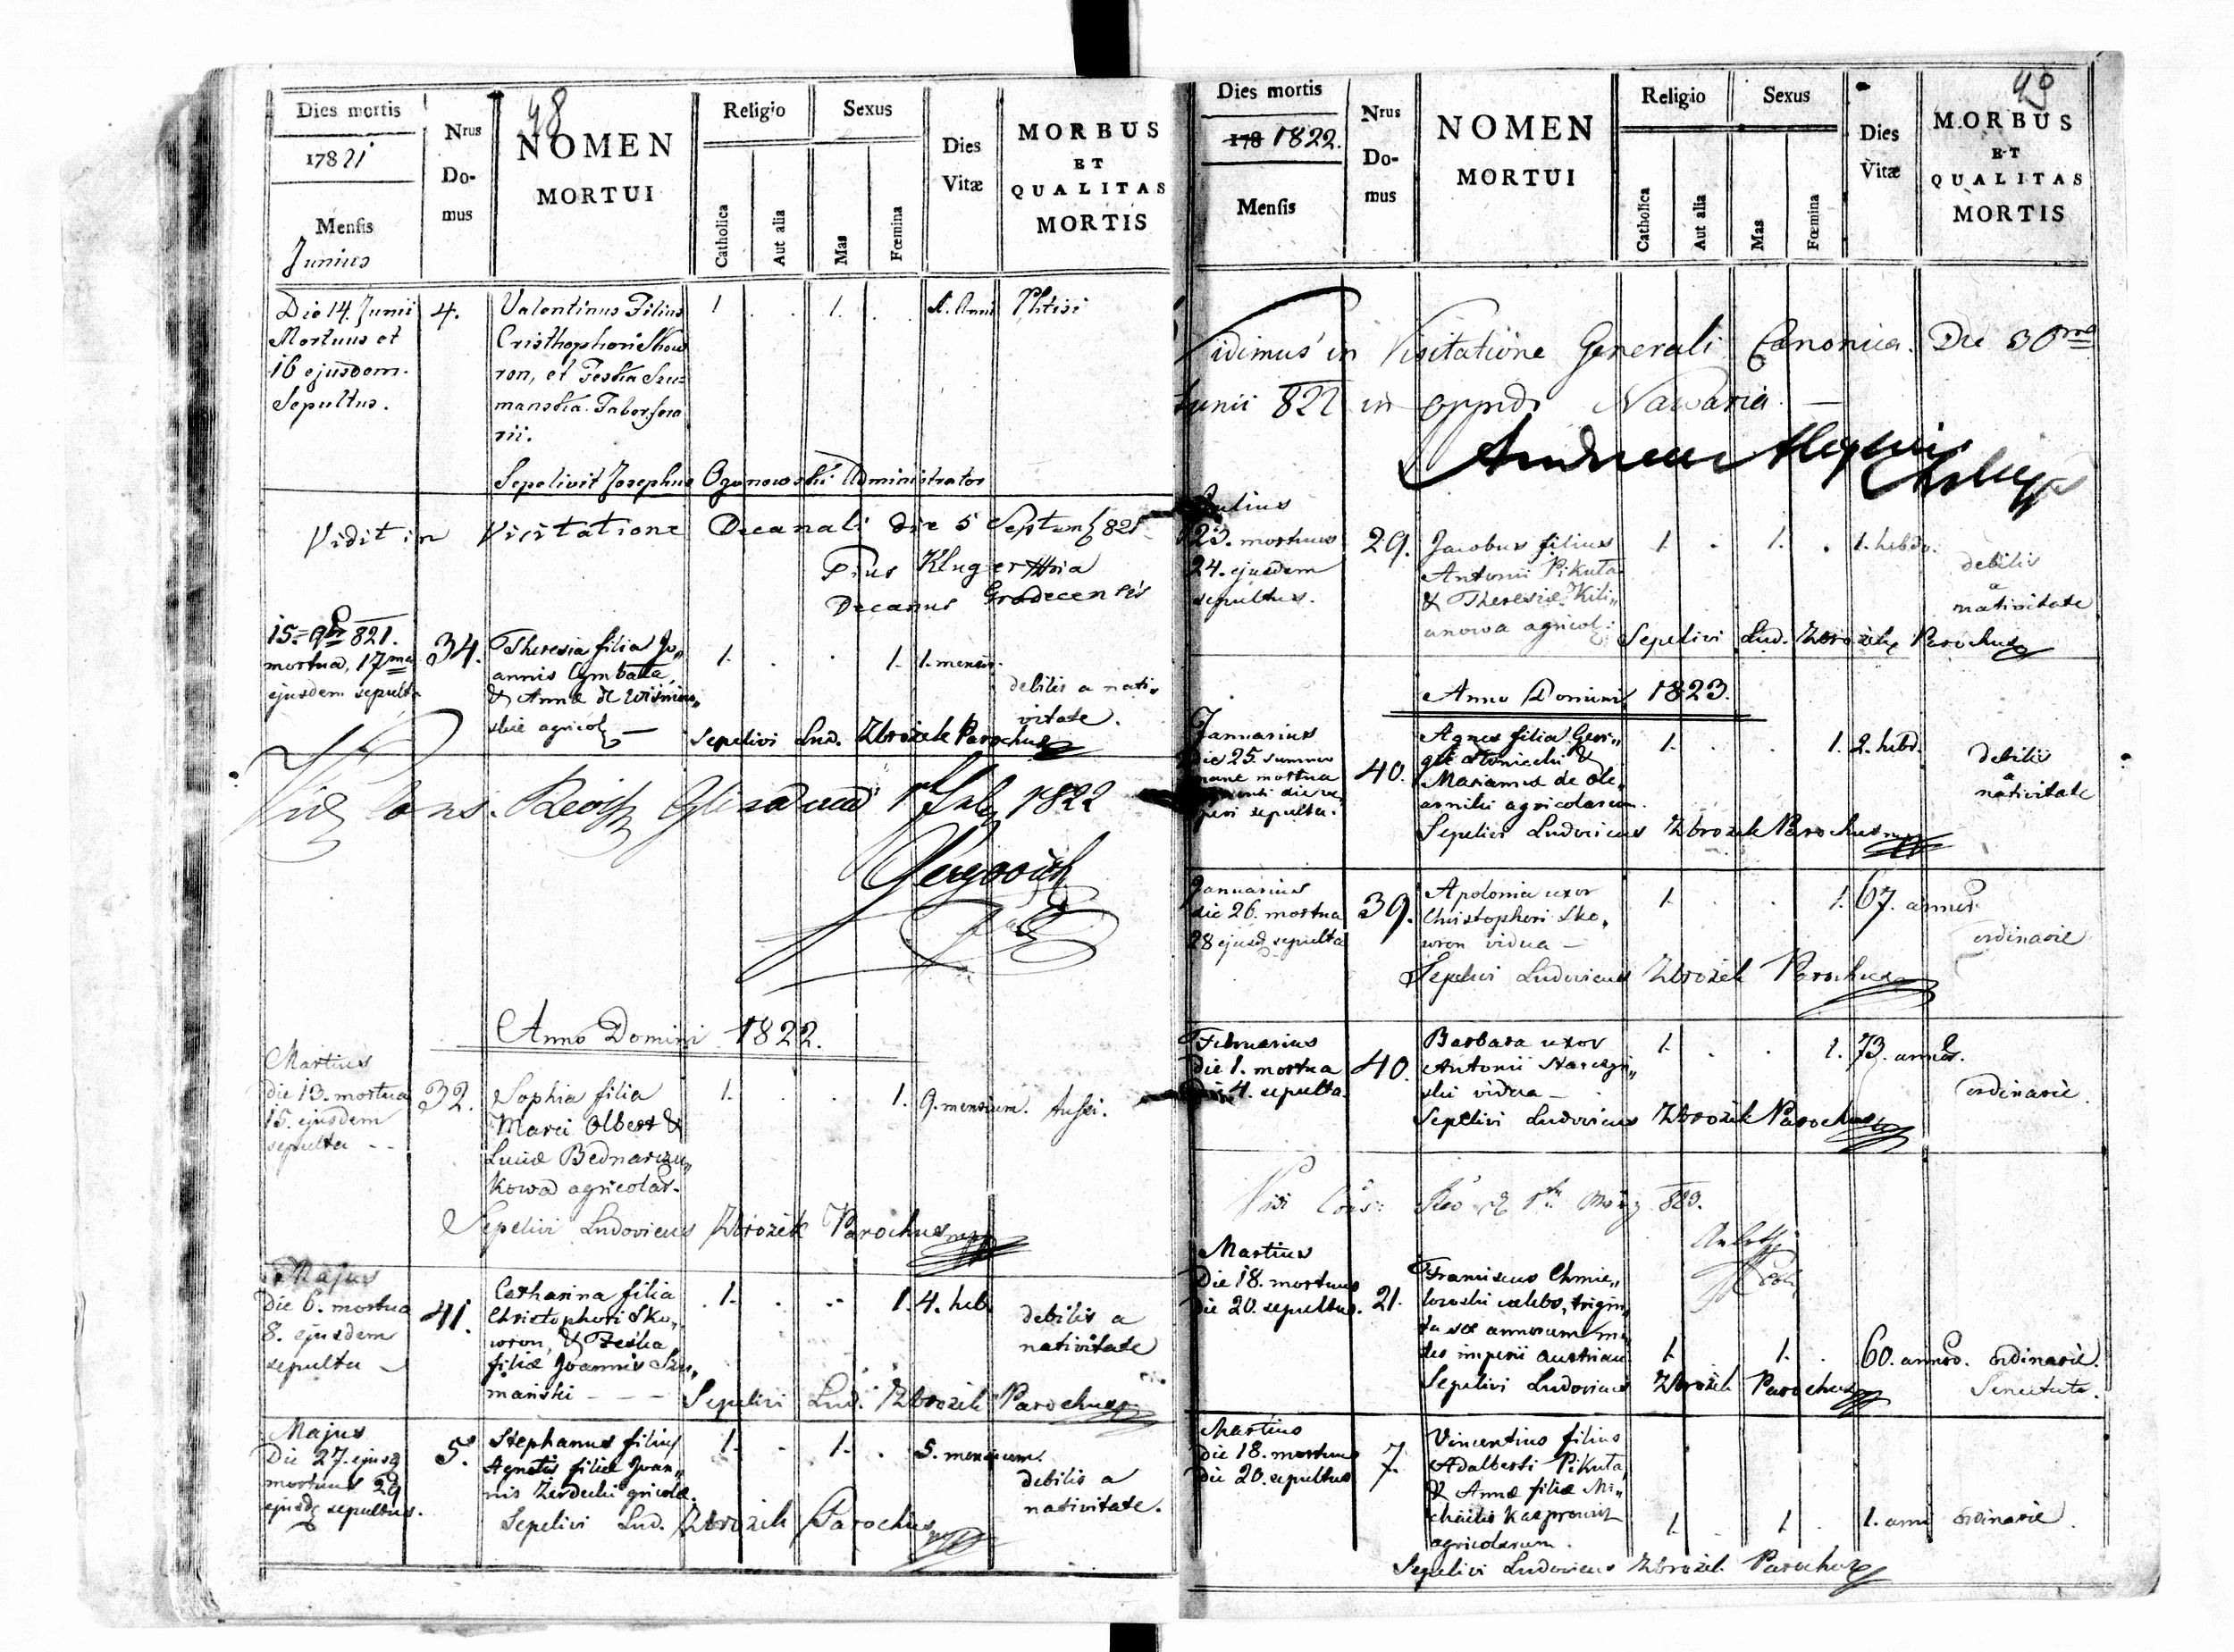 48
Dies mortis
17821
Mensis
Junius
Nrus
Do-
mus
NOMEN
MORTUI
Religio
Catholica
Aut alia
Sexus
Mas
Fœmina
Dies
Vitæ
MORBUS
ET
QUALITAS
MORTIS
Die 14. Junii 4. Valentinus Filius 1 . 1. . Anni Phtisi
Mortuus et Cristhophori Skow
16 ejusdem. ron, et Teskia Szu=
Sepultus. manska
rii.
Sepelivit Josephus Ogonowski Administrator
Vidit in Visitatione Decanali die 5 Septemb 821
Pius Kluger
Decanus Grodecensis
15. 9br 821. 34. Theresia filia Jo„ 1. . . 1. 1. mensis.
mortua, 17ma annis Cymbała,
ejusdem sepulta & Annæ de Wisniew„ debilis a nati„
skie agricol vitate.
Sepelivi Lud. Zbrożek Parochus
1822
Anno Domini 1822.
Martius
die 13. mortua 32. Sophia filia 1. . . 1. 9. mensium. tussi.
15. ejusdem Marci Olbert &
sepulta - - Luciæ Bednarczu„
kowa agricolar.
Sepelivi Ludovicus Zbrożek Parochus mpp
Majus
Die 6. mortua 41. Catharina filia 1. . .. 1. 4. heb.
8. ejusdem Christophori Sko„ debilis a
sepulta wron, & Teskia nativitate
filiæ Joannis Szu„
mański - - -
Sepelivi Lud. Zbrożek Parochus
Majus
Die 27. ejusd 5. Stephanus filius 1. - 1. . 5. mensium.
mortuus 29 Agnetis filiæ Joan„ debilis a
ejusd sepultus. nis Zerdecki gricolæ. nativitate.
Sepelivi Lud. Zbrożek Parochus
49
Dies mortis
178 1822.
Mensis
Nrus
Do-
mus
NOMEN
MORTUI
Religio
Catholica
Aut alia
Sexus
Mas
Fœmina
Dies
Vitæ
MORBUS
ET
QUALITAS
MORTIS
Vidimus in Visitatione Generali Canonica. Die 30ma
Junii 822 in oppido Nawaria. —
Julius
23. mortuus 29. Jacobus filius 1. . 1. . 1. hebdo.
24. ejusdem Antonii Pikuta debilis
sepultus. & Theresiæ Kili„ a
anowa agricol: nativitate
Sepelivi Lud. Zbrożek Parochus
Anno Domini 1823.
Januarius
die 25. summo 40. Agnes filia Geor„ 1. . . 1. 2. hebd.
mane mortua debilis
Marianna de Ole„ a
peri sepulta. arniki agricolarum. nativitate
Sepelivi Ludovicus Zbrożek Parochus
Januarius
die 26. mortua 39. Apolonia uxor 1. . . 1. 67. annor
28 ejusd sepulta Christophori Sko„ ordinarie
wron vidua —
Sepelivi Ludovicus Zbrożek Parochus
Februarius
die 1. mortua 40. Barbara uxor 1. . . 1. 73. annor.
4. sepulta. Antonii Starczyń„ ordinarie.
ski vidua —
Sepelivi Ludovicus Zbrożek Parochus
Martius
Die 18. mortuus 21. Franciscus Chmie„
Die 20. sepultus. lowski cælebs, trigin„
ta annorum mi
les imperii austriac. 1. 1. . 60. annor. ordinarie.
Sepelivi Ludovicus Zbrożek Parochus Senectute.
Martius
Die 18. mortuus 7. Vincentius filius
Die 20. sepultus Adalberti Pikuta,
& Annæ filiæ Mi„
chäelis Kasprowicz 1. . 1. . 1. anni ordinarie.
agricolarum.
Sepelivi Ludovicus Zbrożek Parochus